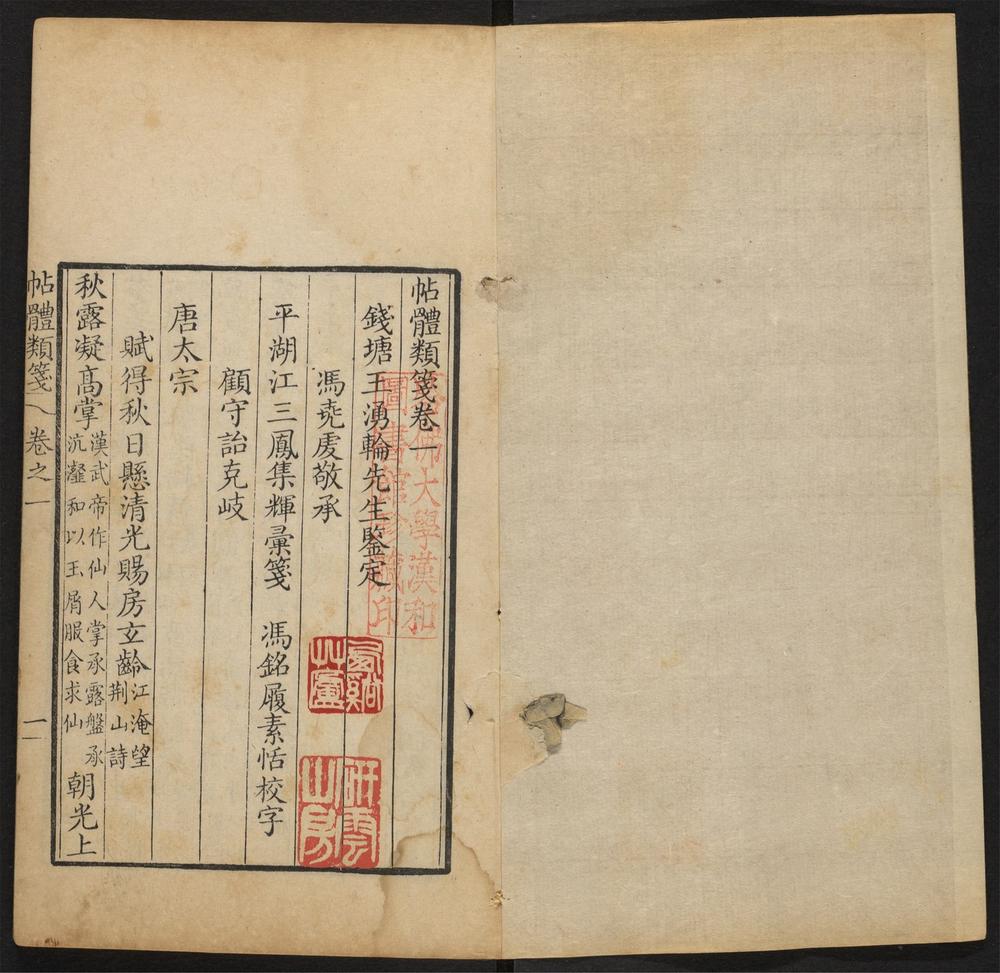 帖體類箋卷一
錢塘王湧輪先生鑒定
馮堯虔敬承
平湖江三鳳集輝彙箋　馮銘履素恬校字
顧守詒克岐
唐太宗
賦得秋日懸清光賜房玄齡江淹望荆山詩
秋露凝高掌漢武帝作仙人掌承露盤承沆瀣和以玉屑服食求仙朝光上
帖體類箋　卷之一　一
哈佛大學漢和
圖書館珍藏印
谿
艸廬
研雲
山房